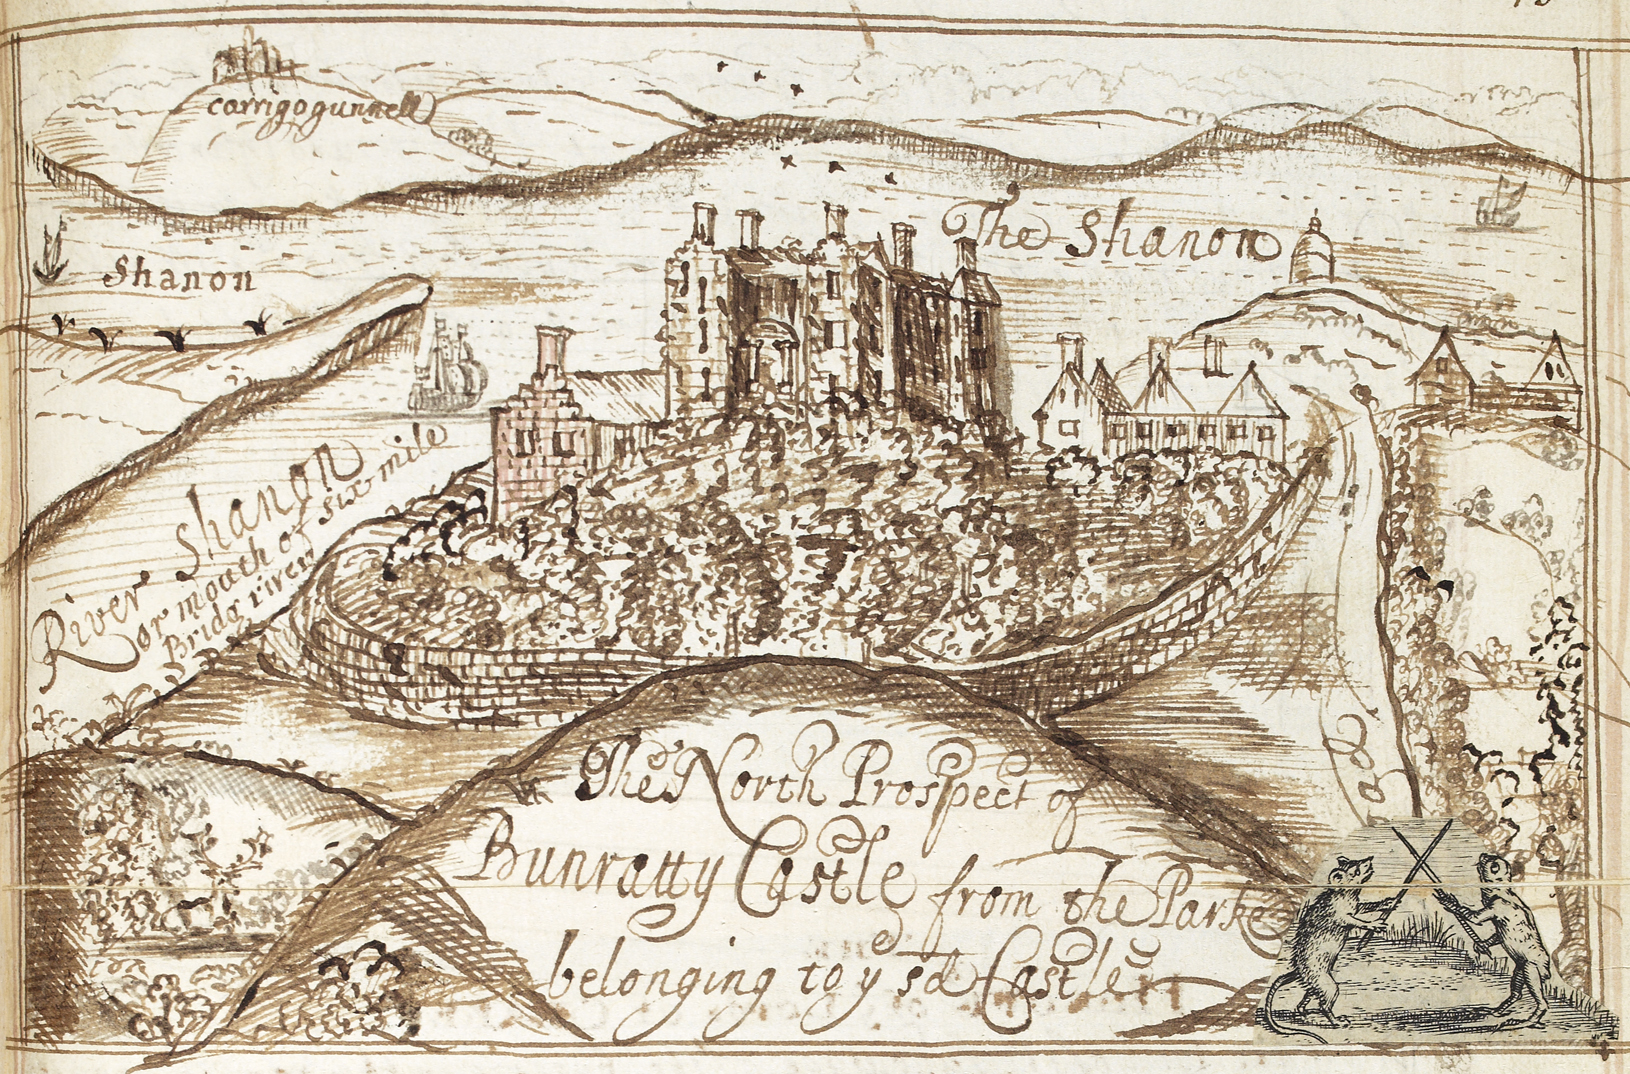 carrigogunnell
The Shanon
Shanon
River Shanon
or mouth of six mile
Bridg river
The North Prospect of
Bunratty Castle from the Parke
belonging to y sd Castle